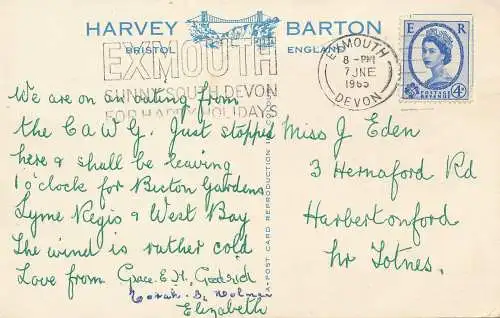 HARVEY BARTON
BRISTOL ENGLAND
EXMOUTH
SUNNY SOUTH DEVON
FOR HAPPY HOLIDAYS
EXMOUTH
8 - PM
7 JNE
1965
DEVON
E R
POSTAGE REVENUE
4D
We are on an outing from
the C.A.W.G. Just stopped
here & shall be leaving
1 o'clock for Bicton Gardens
Lyme Regis & West Bay
The wind is rather cold
Love from Grace. E. M.
Norah. B.
Elizabeth
A POST CARD REPRODUCTION IN
Miss J Eden
3 Hernaford Rd
Harbertonford
nr Totnes.